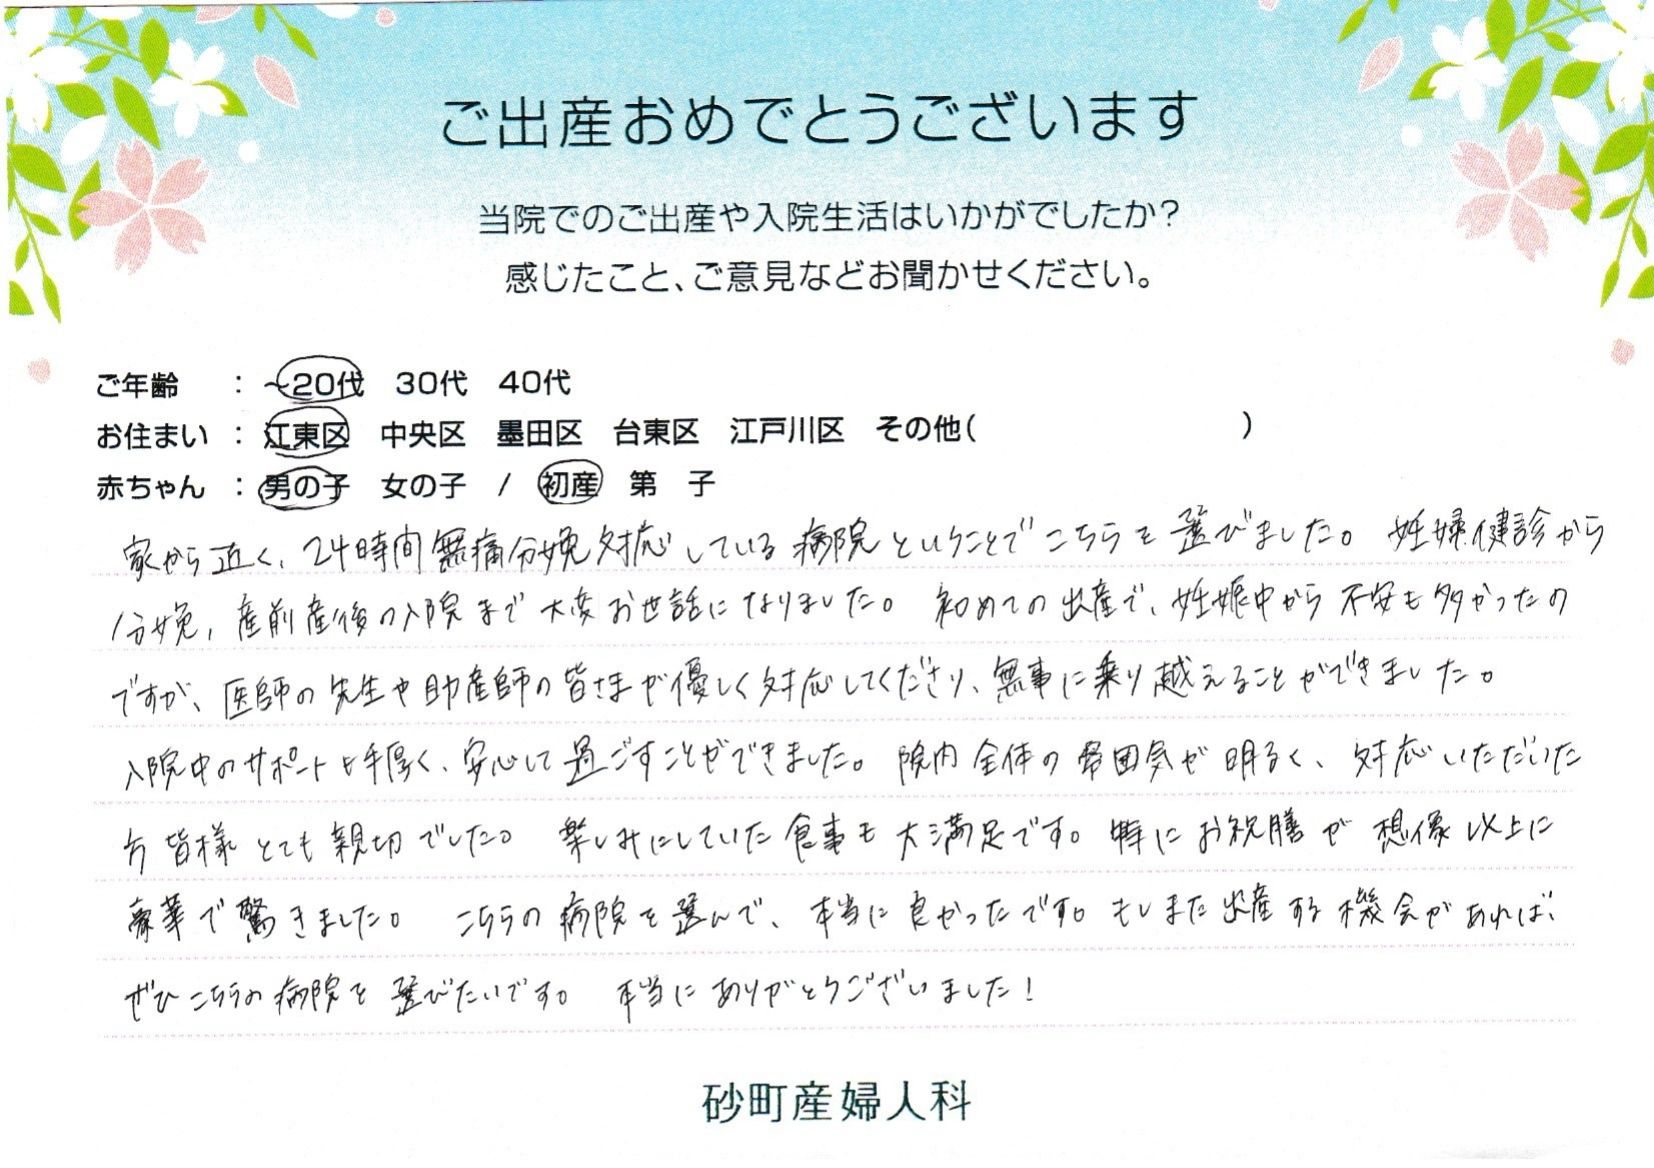 ご出産おめでとうございます
当院でのご出産や入院生活はいかがでしたか?
感じたこと、ご意見などお聞かせください。
ご年齢 : ~20代 30代 40代
お住まい : 江東区 中央区 墨田区 台東区 江戸川区 その他( )
赤ちゃん : 男の子 女の子 / 初産 第 子
家から近く、24時間無痛分娩対応している病院ということでこちらを選びました。妊婦健診から
分娩、産前産後の入院まで大変お世話になりました。初めての出産で、妊娠中から不安も多かったの
ですが、医師の先生や助産師の皆さまが優しく対応してくださり、無事に乗り越えることができました。
入院中のサポートも手厚く、安心して過ごすことができました。院内全体の雰囲気が明るく、対応いただいた
方皆様とても親切でした。楽しみにしていた食事も大満足です。特にお祝膳が想像以上に
豪華で驚きました。こちらの病院を選んで、本当に良かったです。もしまた出産する機会があれば、
ぜひこちらの病院を選びたいです。本当にありがとうございました!
砂町産婦人科